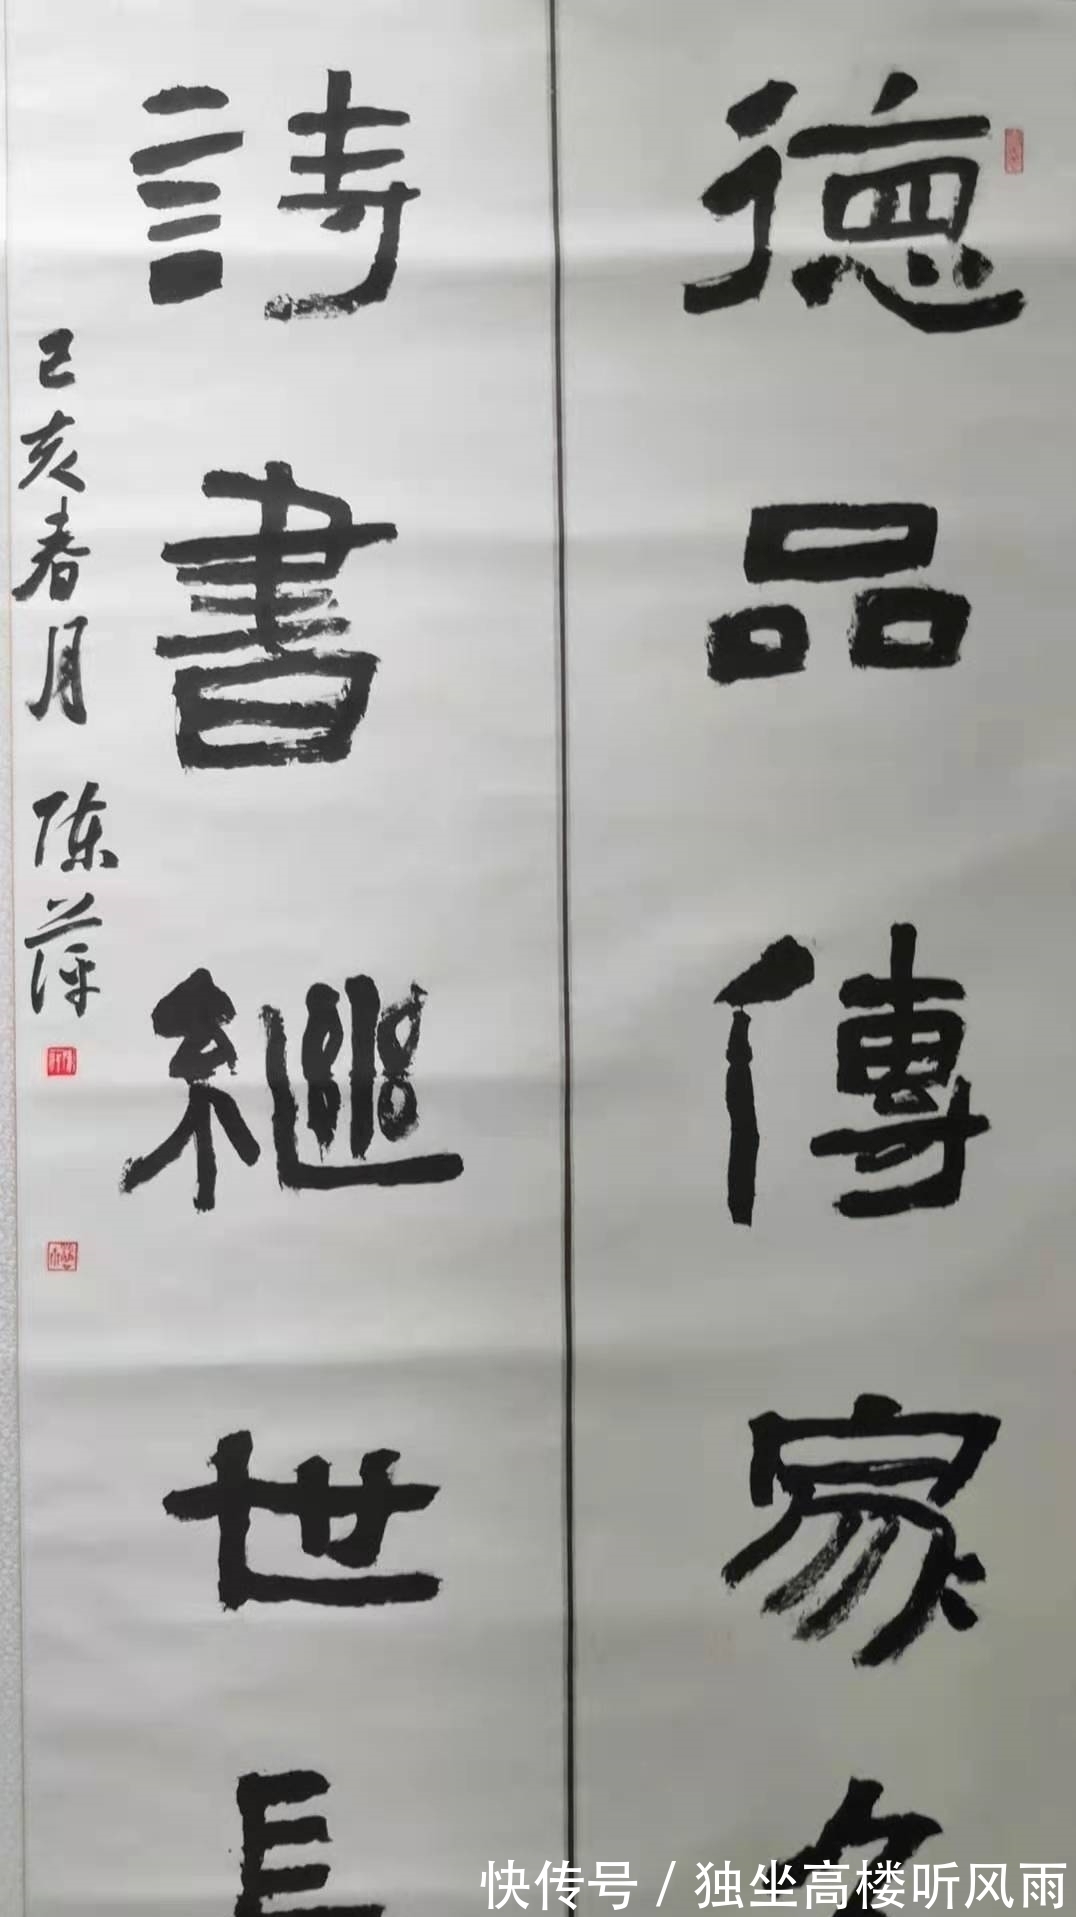 德品傳家久
詩書繼世長
己亥春月 陈萍
快传号/独坐高楼听风雨